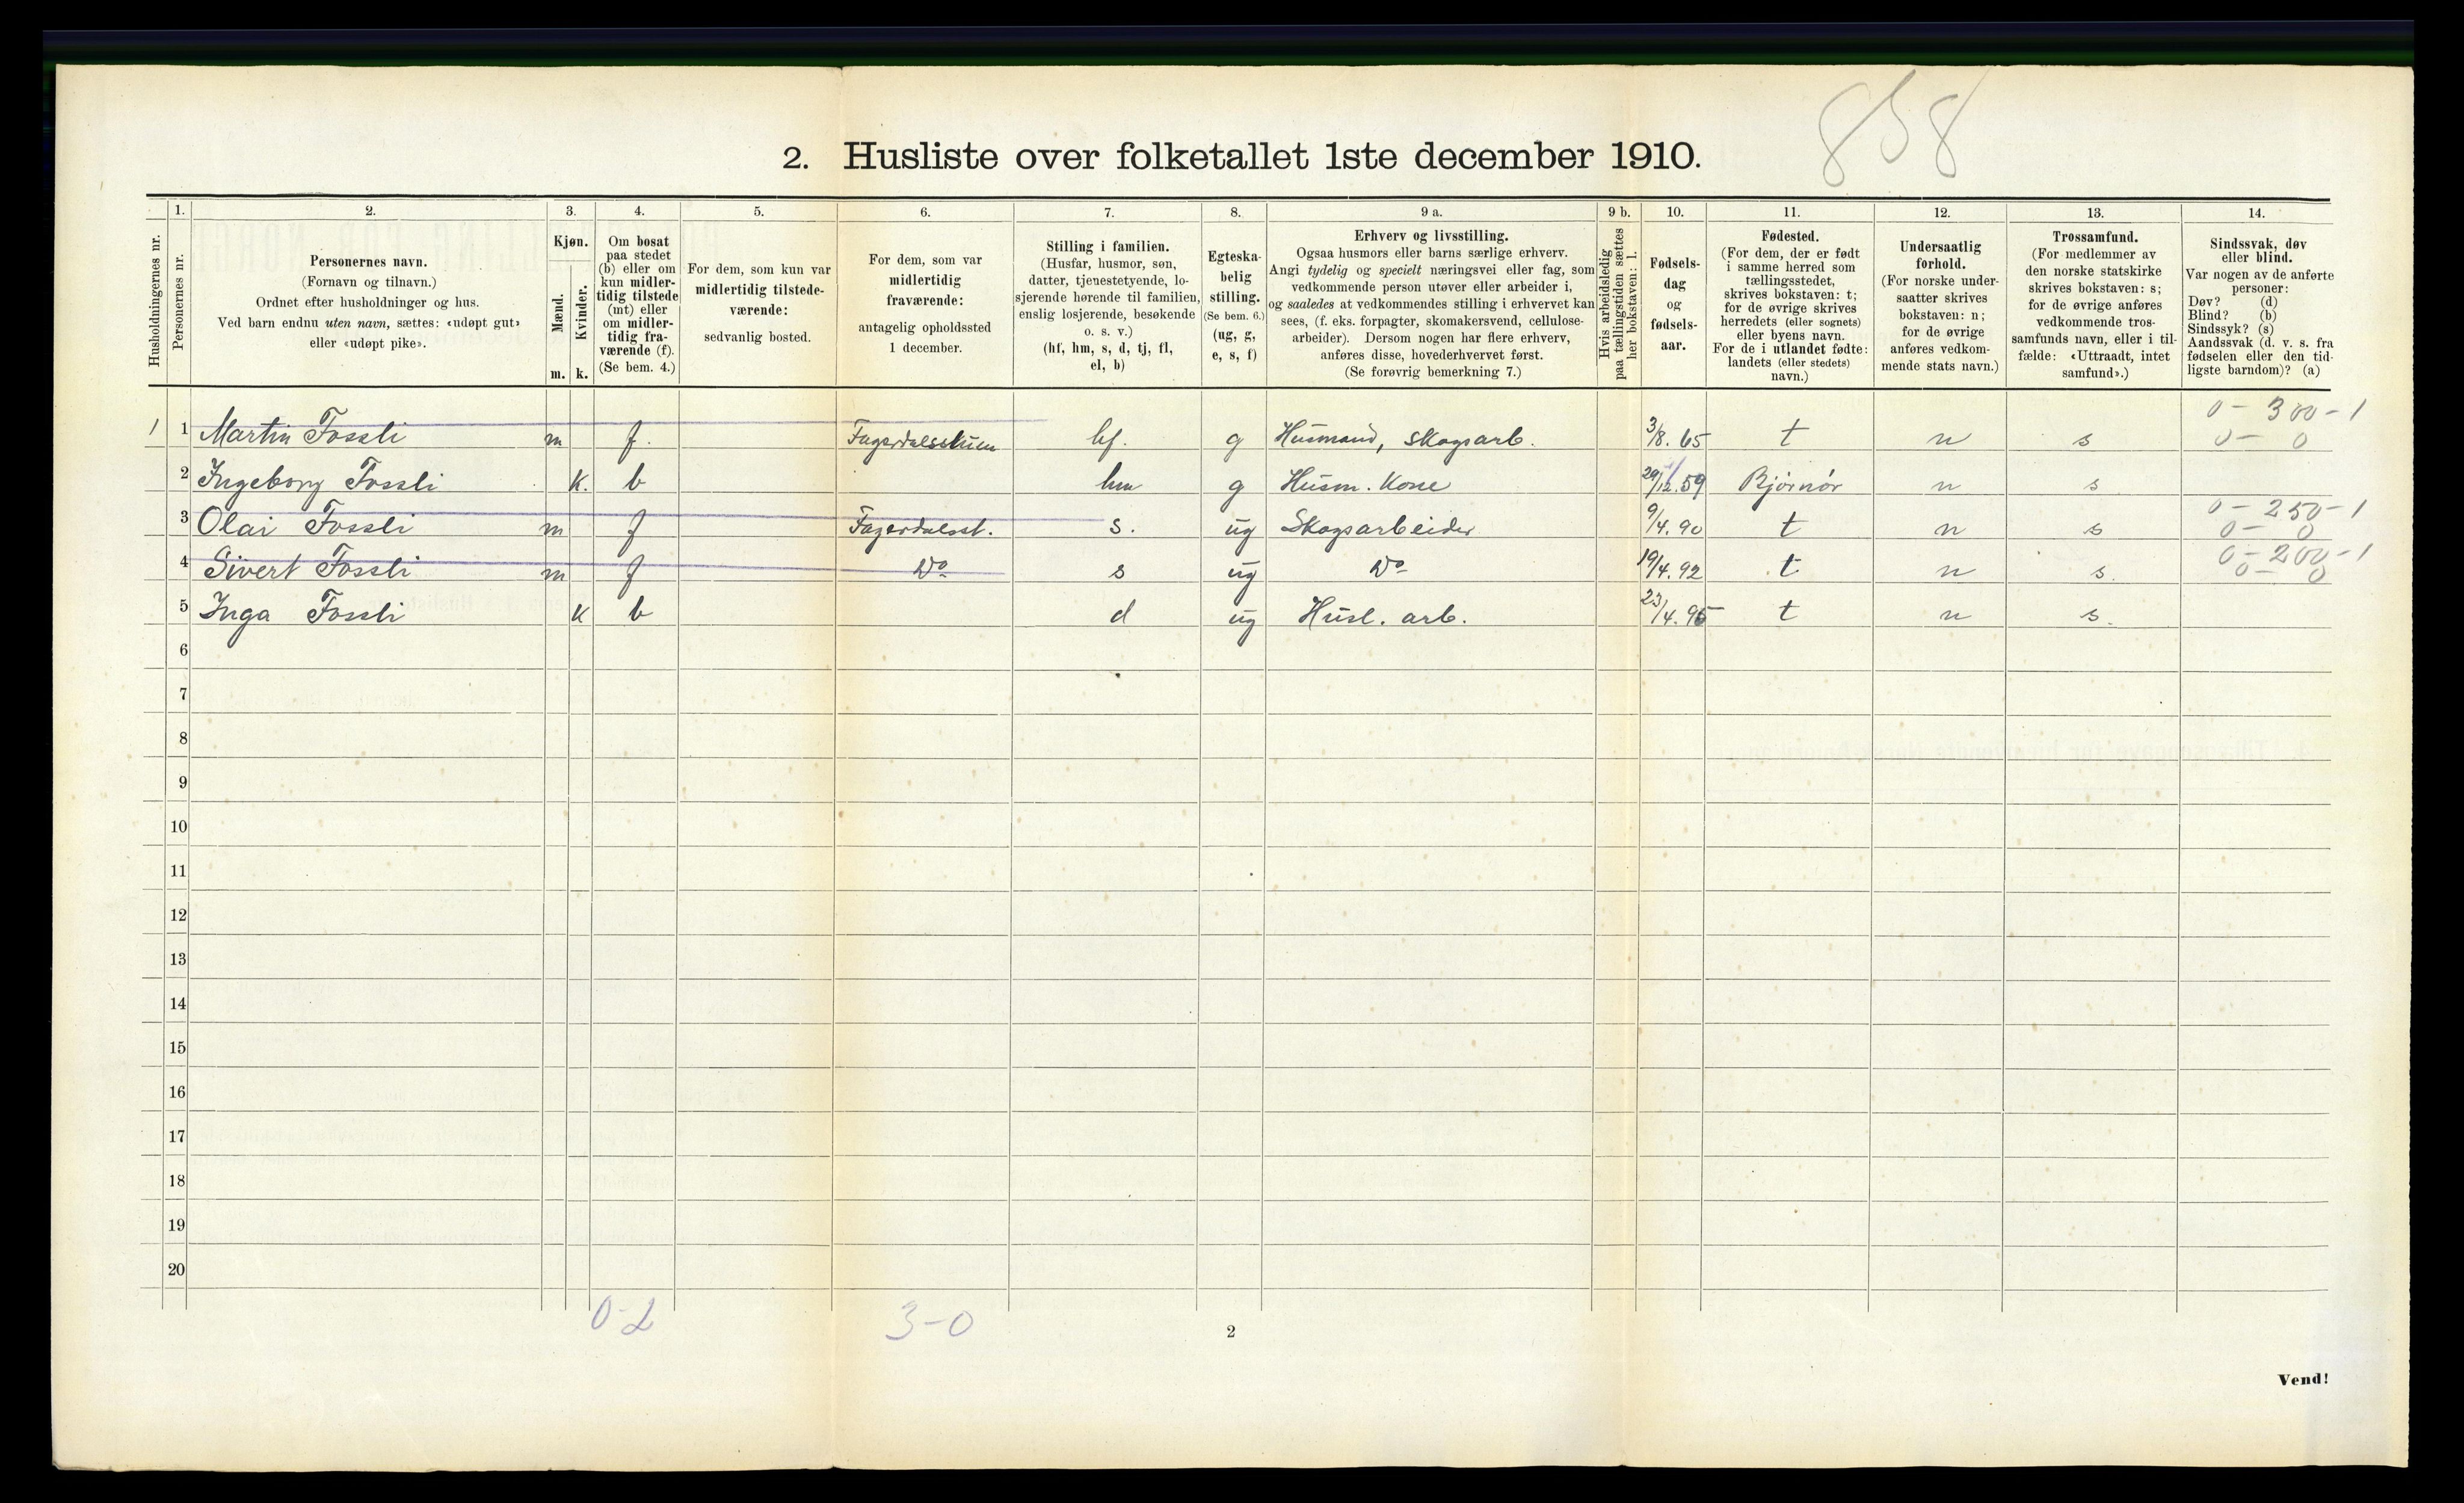 858
2. Husliste over folketallet 1ste december 1910.
Husholdningernes nr.
1.
Personernes nr.
2.
Personernes navn.
(Fornavn og tilnavn.)
Ordnet efter husholdninger og hus.
Ved barn endnu uten navn, sættes: «udøpt gut»
eller «udøpt pike».
3.
Kjøn.
Mænd.
Kvinder.
m. k.
4.
Om bosat
paa stedet
(b) eller om
kun midler-
tidig tilstede
(mt) eller
om midler-
tidig fra-
værende (f).
(Se bem. 4.)
5.
For dem, som kun var
midlertidig tilstede-
værende:
sedvanlig bosted.
6.
For dem, som var
midlertidig
fraværende:
antagelig opholdssted
1 december.
7.
Stilling i familien.
(Husfar, husmor, søn,
datter, tjenestetyende, lo-
sjerende hørende til familien,
enslig losjerende, besøkende
o. s. v.)
(hf, hm, s, d, tj, fl,
el, b)
8.
Egteska-
belig
stilling.
(Se bem. 6.)
(ug, g,
e, s, f)
9 a.
Erhverv og livsstilling.
Ogsaa husmors eller barns særlige erhverv.
Angi tydelig og specielt næringsvei eller fag, som
vedkommende person utøver eller arbeider i,
og saaledes at vedkommendes stilling i erhvervet kan
sees, (f. eks. forpagter, skomakersvend, cellulose-
arbeider). Dersom nogen har flere erhverv,
anføres disse, hovederhvervet først.
(Se forøvrig bemerkning 7.)
9 b.
Hvis arbeidsledig
paa tællingstiden sættes
her bokstaven: l.
10.
Fødsels-
dag
og
fødsels-
aar.
11.
Fødested.
(For dem, der er født
i samme herred som
tællingsstedet,
skrives bokstaven: t;
for de øvrige skrives
herredets (eller sognets)
eller byens navn.
For de i utlandet fødte:
landets (eller stedets)
navn.)
12.
Undersaatlig
forhold.
(For norske under-
saatter skrives
bokstaven: n;
for de øvrige
anføres vedkom-
mende stats navn.)
13.
Trossamfund.
(For medlemmer av
den norske statskirke
skrives bokstaven: s;
for de øvrige anføres
vedkommende tros-
samfunds navn, eller i til-
fælde: «Uttraadt, intet
samfund».)
14.
Sindssvak, døv
eller blind.
Var nogen av de anførte
personer:
Døv? (d)
Blind? (b)
Sindssyk? (s)
Aandssvak (d. v. s. fra
fødselen eller den tid-
ligste barndom)? (a)
0 - 300 - 1
1 1 Martin Fossli m f. Fagerdalsstuen hf. g Husmand, skogsarb. 3/8. 65 t n s 0 - 0
2 Ingeborg Fossli k. b hm g Husm. Kone 29/12. 59 Bjørnør n s
0 - 250 - 1
3 Olai Fossli m f Fagerdalsst. s. ug Skogsarbeider 9/4. 90 t n s 0 - 0
0 - 200 - 1
4 Sivert Fossli m f Do s ug Do 19/4. 92 t n s. 0 - 0
5 Inga Fossli k b d ug Husl. arb. 23/4. 95 t n s.
6
7
8
9
10
11
12
13
14
15
16
17
18
19
20
0-2 3-0
2
Vend!